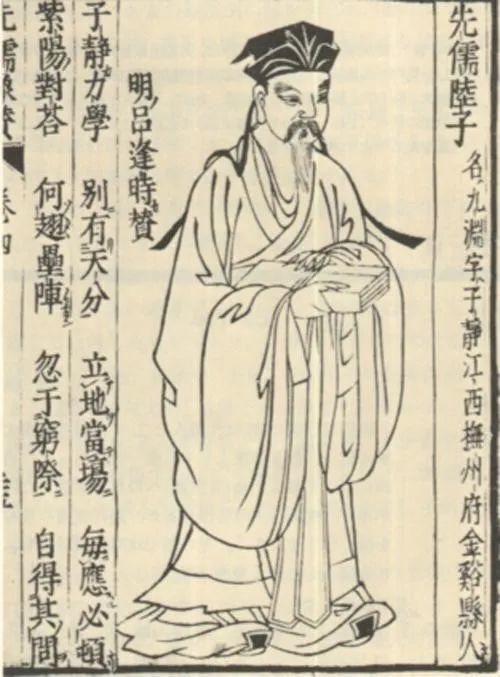 先儒陸子
名九淵字子靜江西撫州府金谿縣人
明呂逢時賛
子靜力學 別有天分 立地當場 每應必頓
紫陽對荅 何翅壘陣 忽于窮際 自得其問
先儒像賛 卷四